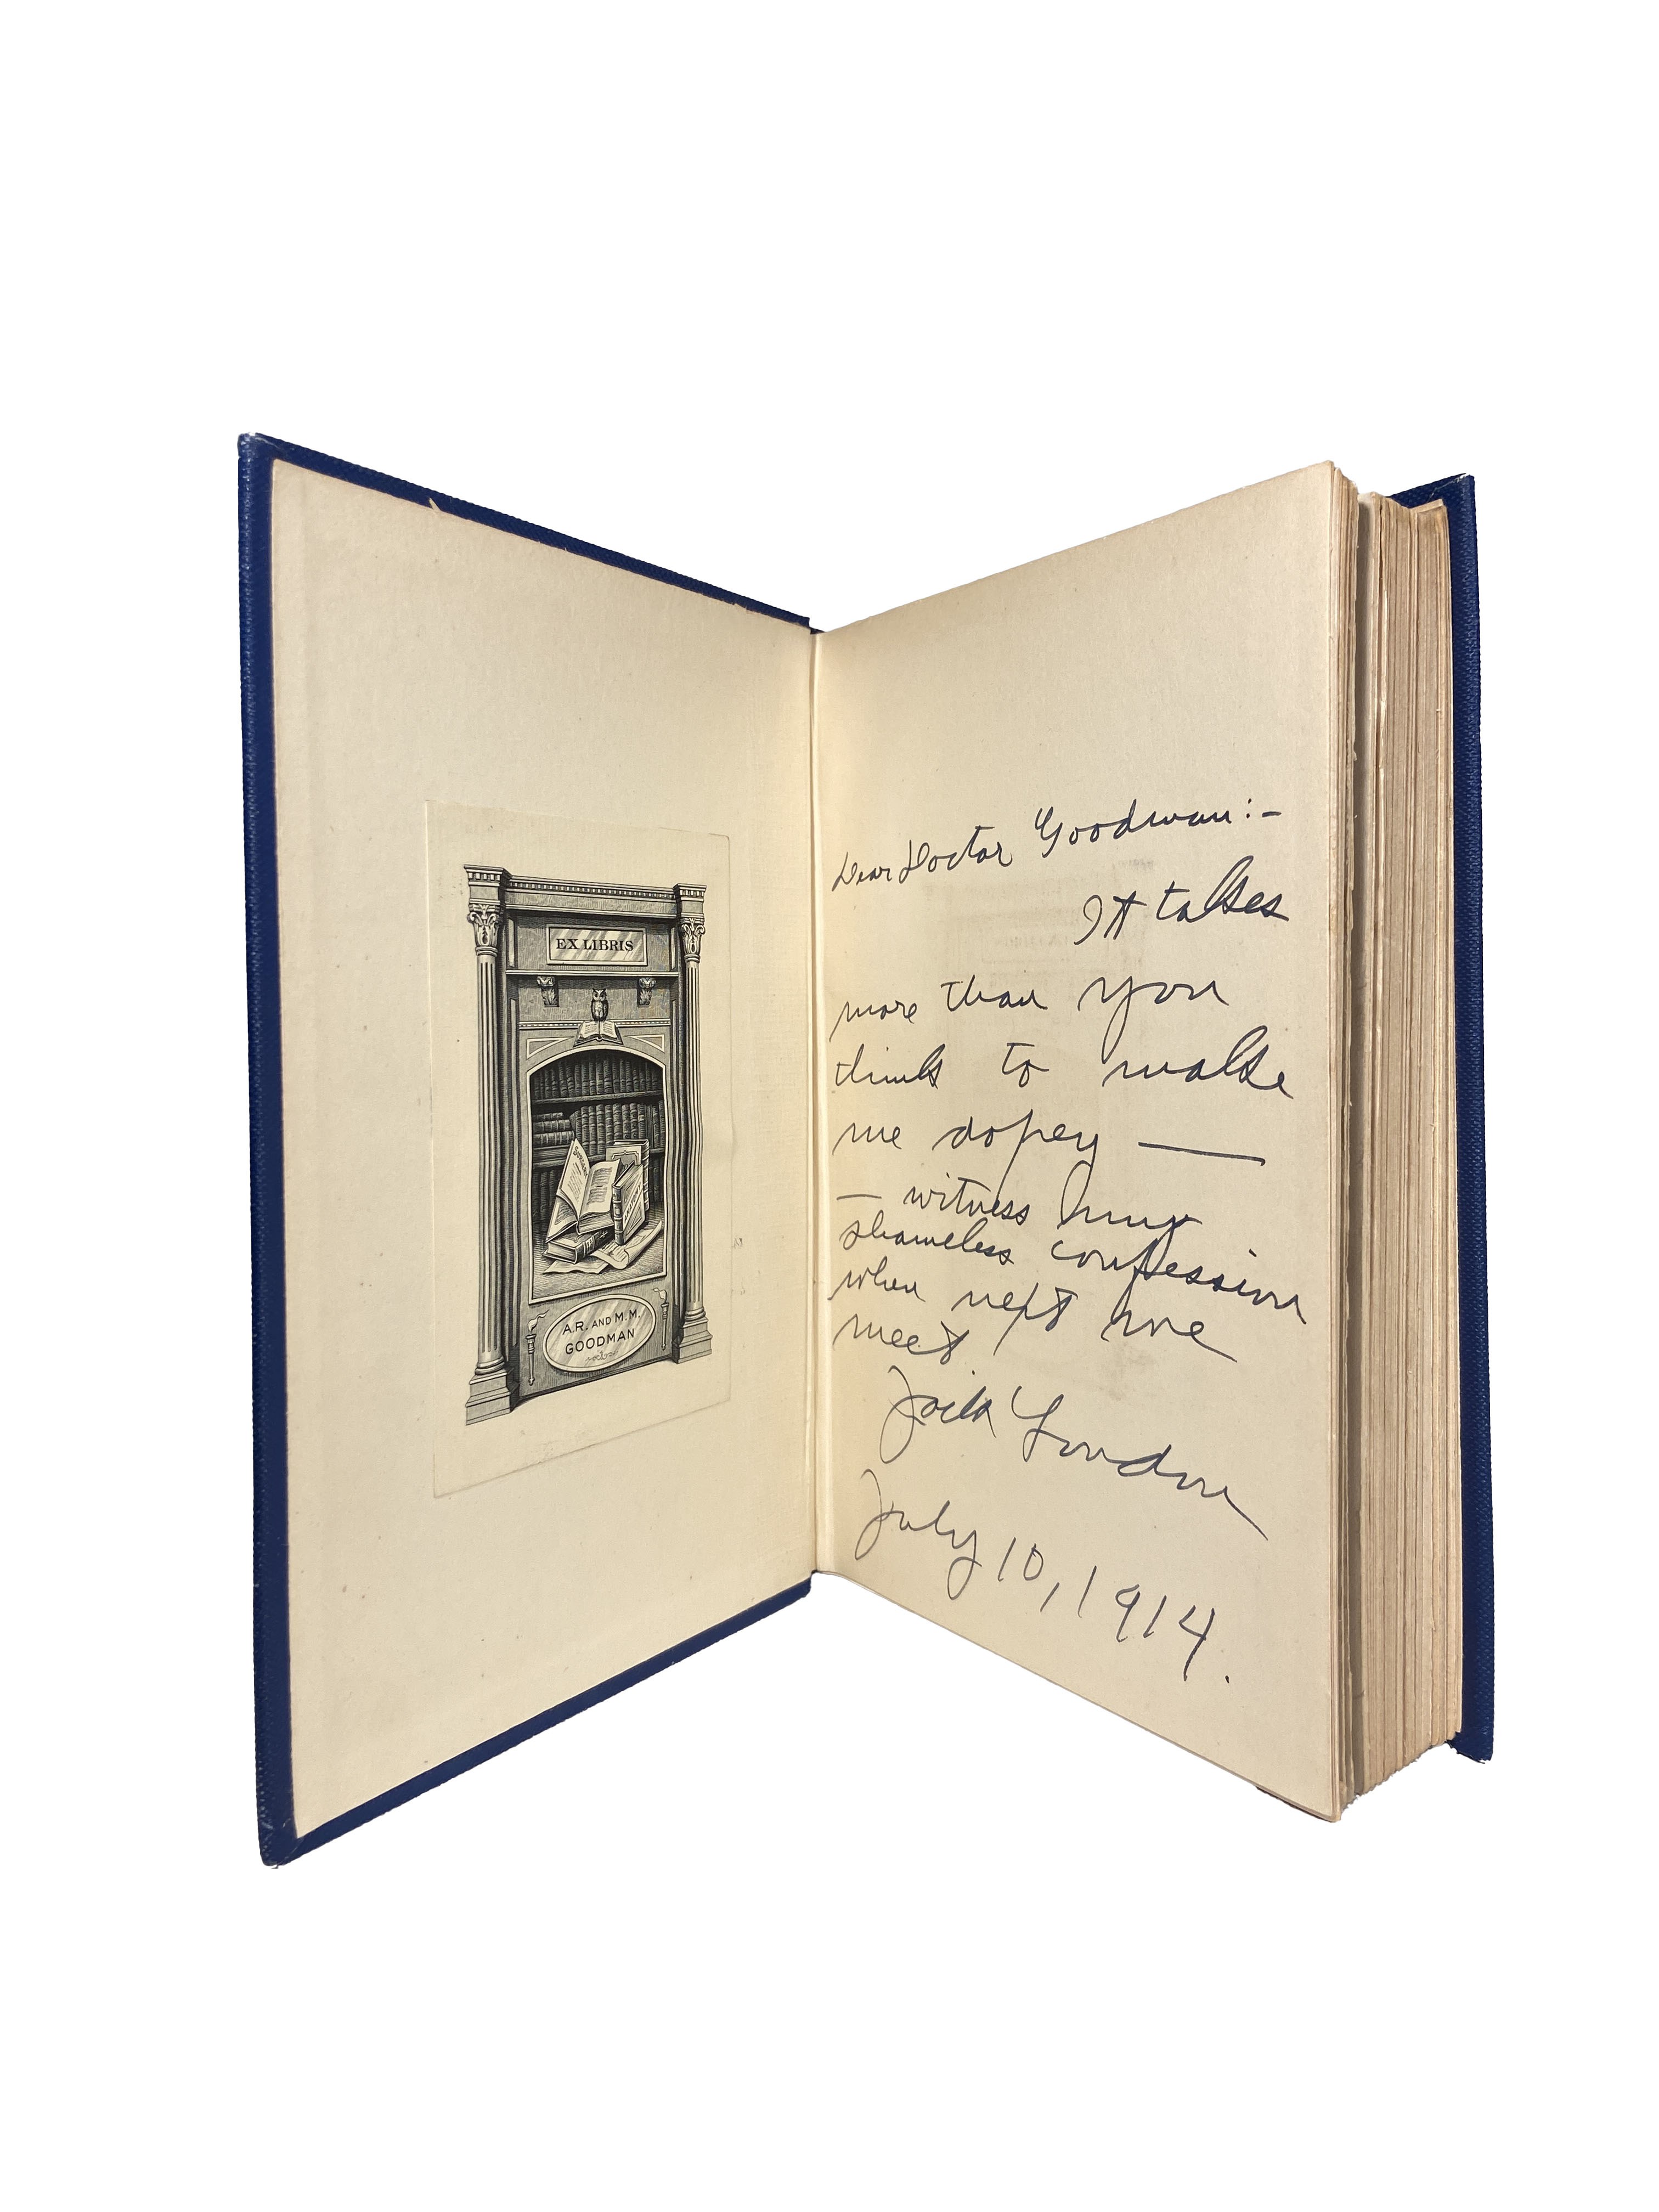 EX LIBRIS
A.R. AND M.M.
GOODMAN
Dear Doctor Goodman:-
It takes
more than you
think to make
me dopey —
— witness my
shameless confession
when next we
meet.
Jack London
July 10, 1914.